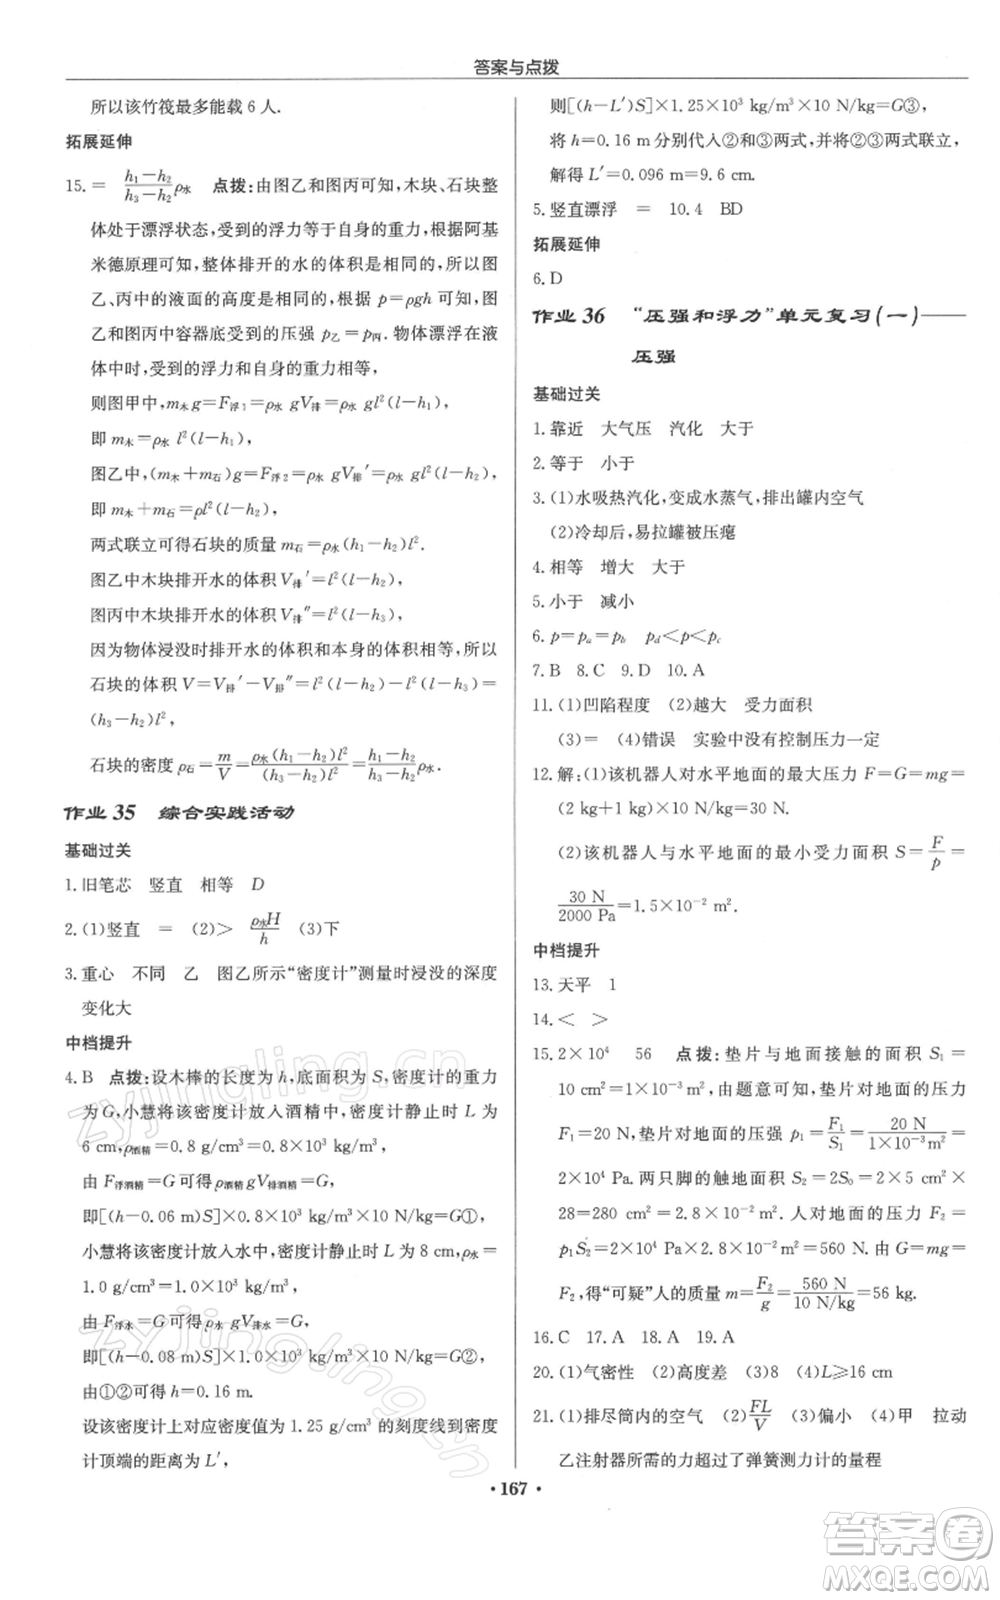 答案与点拨
所以该竹筏最多能载 6 人.
拓展延伸
15. =　(h₁-h₂)/(h₃-h₂)ρ水　点拨:由图乙和图丙可知,木块、石块整
体处于漂浮状态,受到的浮力等于自身的重力,根据阿基
米德原理可知,整体排开的水的体积是相等的,所以图
乙、丙中的液面的高度是相等的,根据 p=ρgh 可知,图
乙和图丙中容器底受到的压强 p乙=p丙. 物体漂浮在液
体中时,受到的浮力与自身的重力相等,
则图甲中,m木g=F浮1=ρ水 gV排=ρ水 gl²(l-h₁),
即 m木=ρ水 l²(l-h₁),
图乙中,(m木+m石)g=F浮2=ρ水 gV排′=ρ水 gl²(l-h₂),
即 m木+m石=ρl²(l-h₂),
两式联立可得石块的质量 m石=ρ水(h₁-h₂)l².
图乙中木块排开水的体积 V排′=l²(l-h₂),
图丙中木块排开水的体积 V排″=l²(l-h₃),
因为物体浸没时排开水的体积和本身的体积相等,所以
石块的体积 V=V排′-V排″=l²(l-h₂)-l²(l-h₃)=
(h₃-h₂)l²,
石块的密度 ρ石=m/V=ρ水(h₁-h₂)l²/(h₃-h₂)l²=(h₁-h₂)/(h₃-h₂)ρ水.
作业 35　综合实践活动
基础过关
1. 旧笔芯　竖直　相等　D
2. (1)竖直　=　(2)>　ρ水H/h　(3)下
3. 重心　不同　乙　图乙所示“密度计”测量时浸没的深度
变化大
中档提升
4. B　点拨:设木棒的长度为 h,底面积为 S,密度计的重力
为 G,小慧将该密度计放入酒精中,密度计静止时 L 为
6 cm,ρ酒精=0.8 g/cm³=0.8×10³ kg/m³,
由 F浮酒精=G 可得 ρ酒精 gV排酒精=G,
即[(h-0.06 m)S]×0.8×10³ kg/m³×10 N/kg=G①,
小慧将该密度计放入水中,密度计静止时 L 为 8 cm,ρ水=
1.0 g/cm³=1.0×10³ kg/m³,
由 F浮水=G 可得 ρ水 gV排水=G,
即[(h-0.08 m)S]×1.0×10³ kg/m³×10 N/kg=G②,
由①②可得 h=0.16 m.
设该密度计上对应密度值为 1.25 g/cm³ 的刻度线到密度
计顶端的距离为 L′,
则[(h-L′)S]×1.25×10³ kg/m³×10 N/kg=G③,
将 h=0.16 m 分别代入②和③两式,并将②③两式联立,
解得 L′=0.096 m=9.6 cm.
5. 竖直漂浮　=　10.4　BD
拓展延伸
6. D
作业 36　“压强和浮力”单元复习(一)——
压强
基础过关
1. 靠近　大气压　汽化　大于
2. 等于　小于
3. (1)水吸热汽化,变成水蒸气,排出罐内空气
(2)冷却后,易拉罐被压瘪
4. 相等　增大　大于
5. 小于　减小
6. p=pₐ=p_b　p_d<p<p_c
7. B　8. C　9. D　10. A
11. (1)凹陷程度　(2)越大　受力面积
(3)=　(4)错误　实验中没有控制压力一定
12. 解:(1)该机器人对水平地面的最大压力 F=G=mg=
(2 kg+1 kg)×10 N/kg=30 N.
(2)该机器人与水平地面的最小受力面积 S=F/p=
30 N/2000 Pa=1.5×10⁻² m².
中档提升
13. 天平　1
14. <　>
15. 2×10⁴　56　点拨:垫片与地面接触的面积 S₁=
10 cm²=1×10⁻³ m²,由题意可知,垫片对地面的压力
F₁=20 N,垫片对地面的压强 p₁=F₁/S₁=20 N/1×10⁻³ m²=
2×10⁴ Pa. 两只脚的触地面积 S₂=2S₀=2×5×
28=280 cm²=2.8×10⁻² m². 人对地面的压力 F₂=
p₁S₂=2×10⁴ Pa×2.8×10⁻² m²=560 N. 由 G=mg=
F₂,得“可疑”人的质量 m=F₂/g=560 N/10 N/kg=56 kg.
16. C　17. A　18. A　19. A
20. (1)气密性　(2)高度差　(3)8　(4)L≥16 cm
21. (1)排尽筒内的空气　(2)FL/V　(3)偏小　(4)甲　拉动
乙注射器所需的力超过了弹簧测力计的量程
• 167 •
zyjingling.cn
zyjingling.cn
答案圈
MXQE.COM